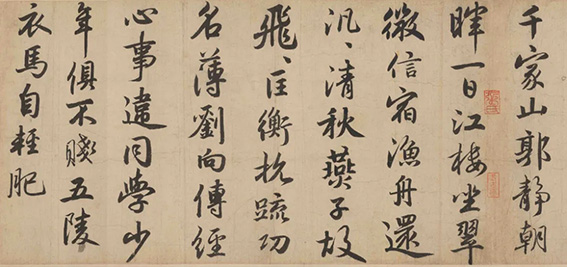 千家山郭静朝
暉一日江樓坐翠
微信宿漁舟還
汎〻清秋燕子故
飛〻匡衡抗疏功
名薄劉向傳經
心事違同學少
年俱不賤五陵
衣馬自輕肥